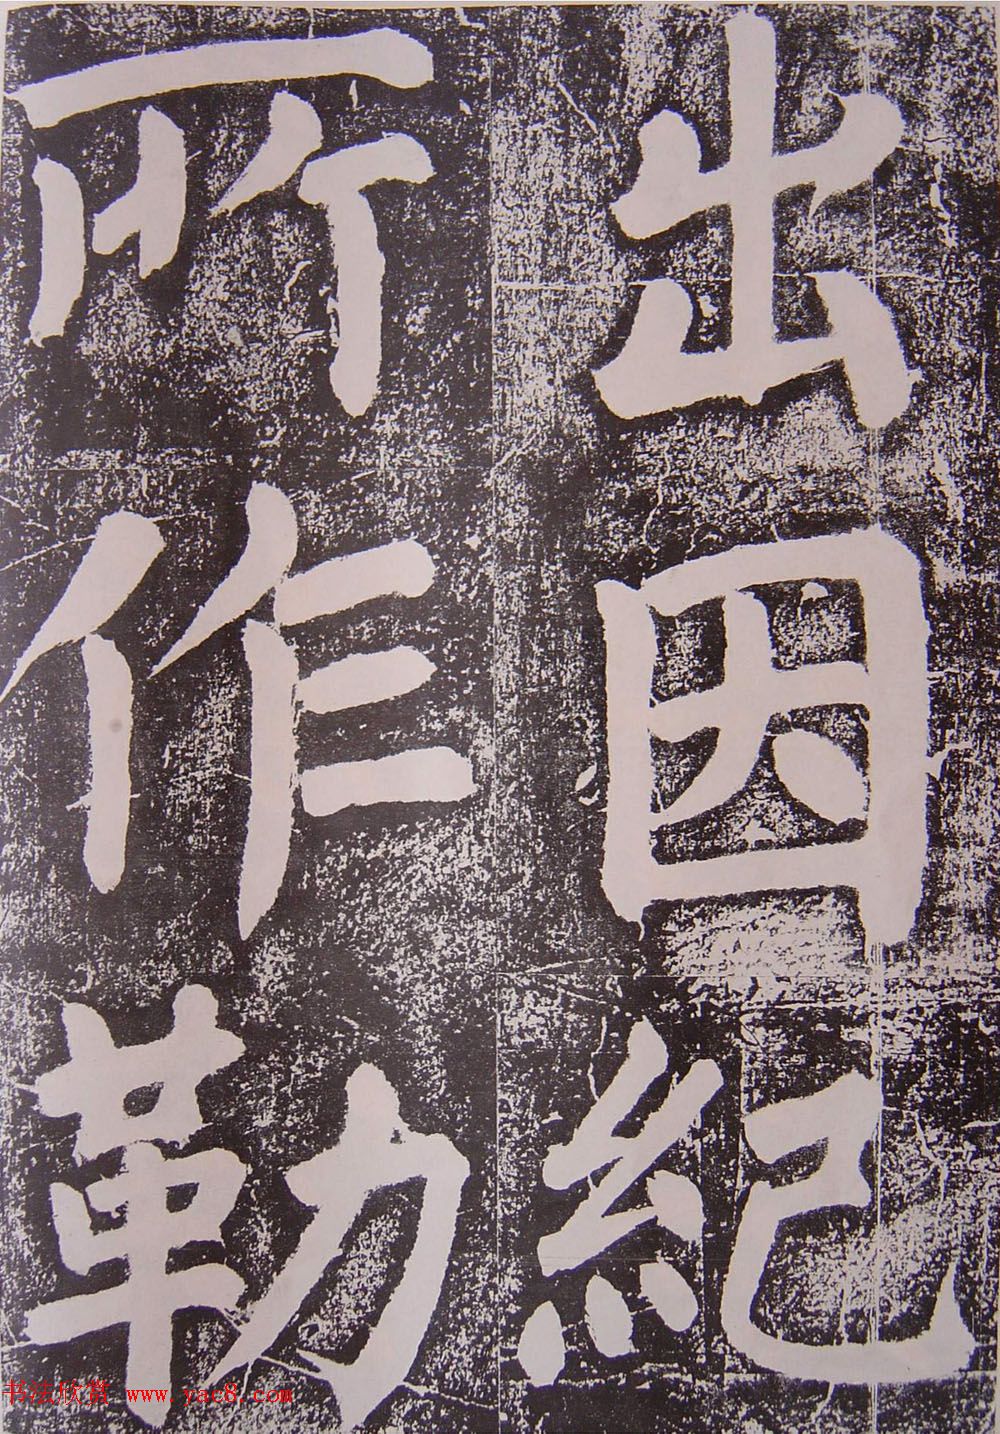 出因紀
所作勒
书法欣赏 www.yac8.com